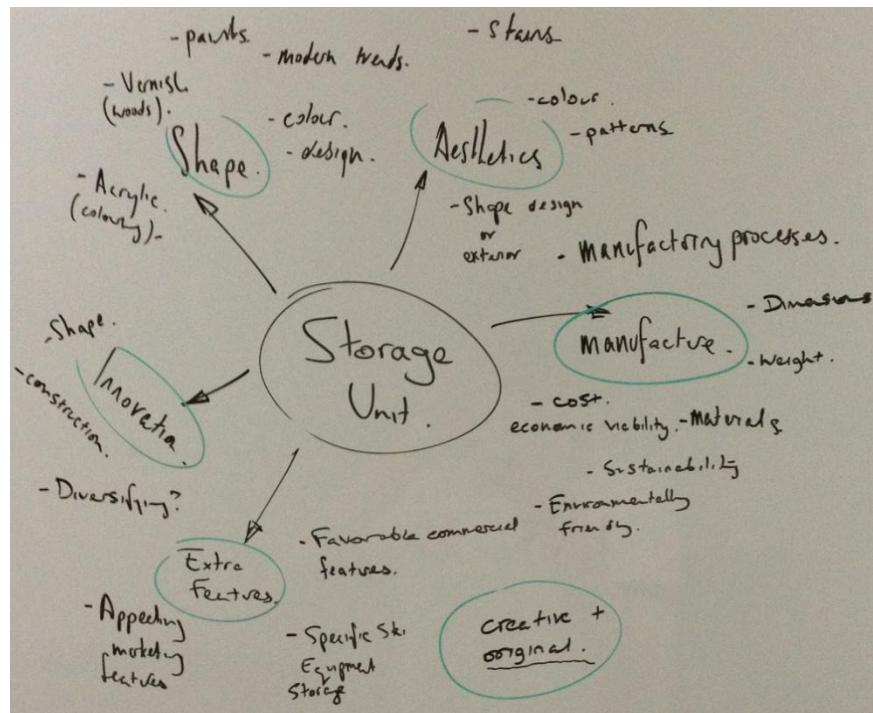 - paints.
- modern trends.
- Stains
- Vernish
(woods).
- colour.
- design.
Shape.
- Acrylic.
(colouring)-
- colour.
- patterns
Aesthetics
- Shape design
or
exterior
- manufactoring processes.
manufacture.
- Dimensions
- Weight.
- cost.
economic viability.
- Materials
- Sustainability
- Environmentally
friendly.
Storage
Unit.
- Shape.
- construction.
Innovation.
- Diversifying?
Extra
Features.
- Favorable commercial
features.
- Appealing
marketing
features
- Specific Ski
Equipment
Storage
creative +
original.